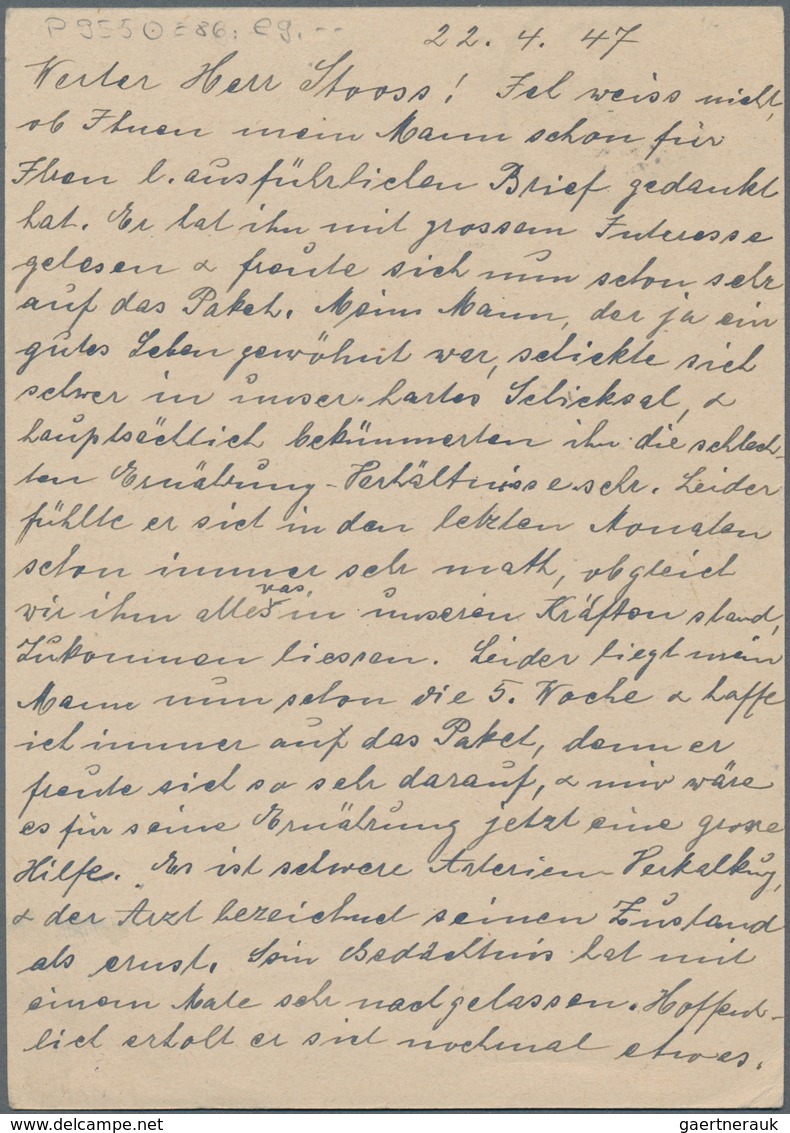 P 955 ⊙ = 86. €9.--
22. 4. 47
Werter Herr Stooss! Ich weiss nicht,
ob Ihnen mein Mann schon für
Ihren l. ausführlichen Brief gedankt
hat. Er hat ihn mit grossem Interesse
gelesen & freute sich nun schon sehr
auf das Paket. Mein Mann, der ja ein
gutes Leben gewöhnt war, schickte sich
schwer in unser hartes Schicksal, &
hauptsächlich bekümmerten ihn die schlech-
ten Ernährung-Verhältnisse sehr. Leider
fühlte er sich in den letzten Monaten
schon immer sehr matt, obgleich
wir ihm alles was in unseren Kräften stand,
zukommen liessen. Leider liegt mein
Mann nun schon die 5. Woche & hoffe
ich immer auf das Paket, denn er
freute sich so sehr darauf, & mir wäre
es für seine Ernährung jetzt eine grosse
Hilfe. Es ist schwere Arterien-Verkalkung,
& der Arzt bezeichnet seinen Zustand
als ernst. Sein Gedächtnis hat mit
einem Male sehr nachgelassen. Hoffent-
lich erholt er sich nochmal etwas.
gaertnerauk